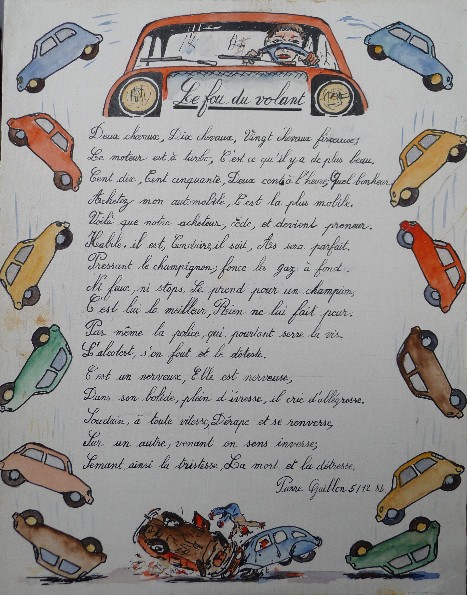 Le fou du volant
Deux chevaux, Dix chevaux, Vingt chevaux fiscaux,
Le moteur est à turbo, C'est ce qu'il y a de plus beau.
Cent dix, Cent cinquante, Deux cents à l'heure, Quel bonheur.
Achetez mon automobile, C'est la plus mobile.
Voilà que notre acheteur, cède, et devient preneur.
Habile, il est, Conduire, il sait, As sera parfait.
Pressant le champignon, fonce les gaz à fond.
Ni feux, ni stops, Se prend pour un champion,
C'est lui le meilleur, Rien ne lui fait peur.
Pas même la police, qui, pourtant serre la vis.
L'alcotest, s'en fout et le déteste.
C'est un nerveux, Elle est nerveuse,
Dans son bolide, plein d'ivresse, il crie d'allégresse.
Soudain, à toute vitesse, Dérape et se renverse,
Sur un autre, venant en sens inverse,
Semant, ainsi la tristesse, La mort et la détresse.
Pierre Guillon 5/12 84